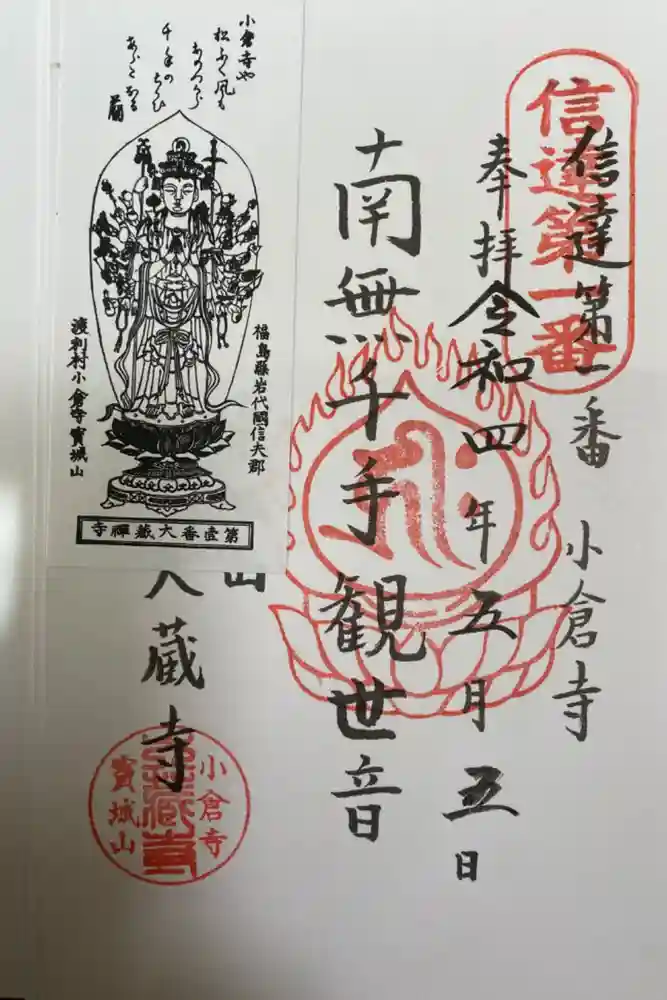 信達第一番
信達第一番 小倉寺
奉拝 令和四年五月五日
南無千手観世音
山
大蔵寺
小倉寺
大蔵寺
寳城山
小倉寺や
松ふく風も
千手の
福島藤岩代國信夫郡
渡利村小倉寺寳城山
第壹番大蔵禅寺